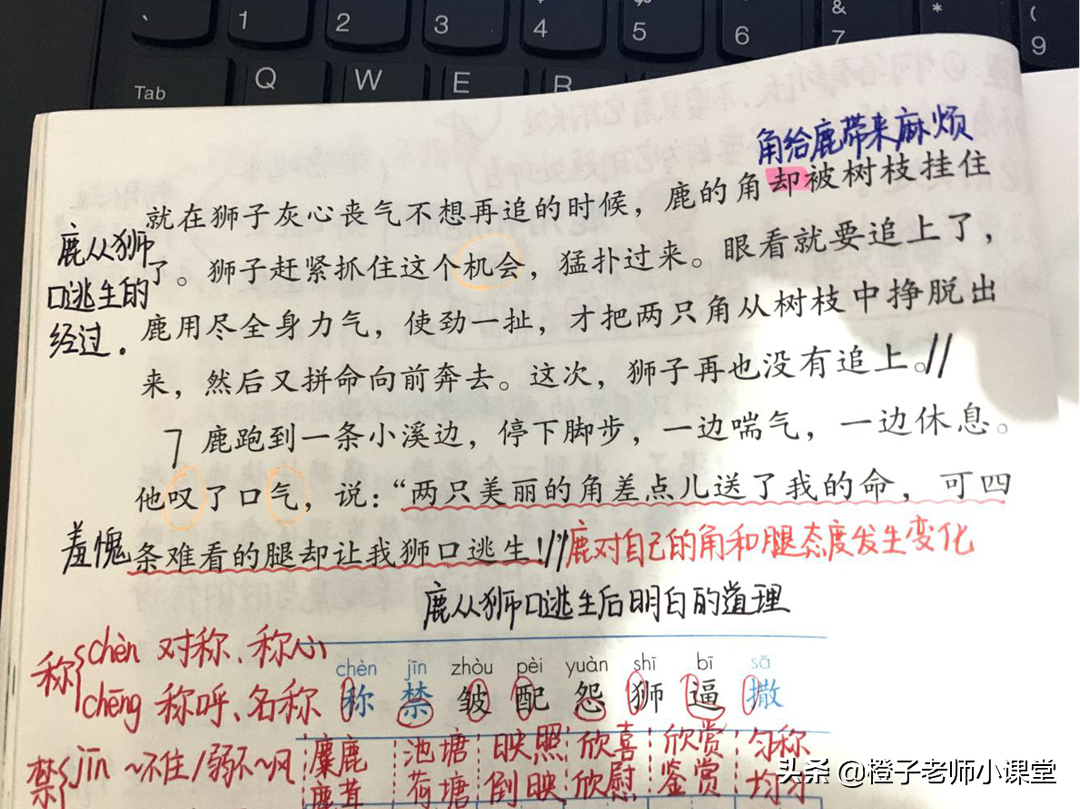 1
2
3
4
5
6
7
&
8
*
9
(
Tab
Q
W
E
R
角给鹿带来麻烦
就在狮子灰心丧气不想再追的时候，鹿的角却被树枝挂住
鹿从狮
口逃生的
经过.
了。狮子赶紧抓住这个机会，猛扑过来。眼看就要追上了，
鹿用尽全身力气，使劲一扯，才把两只角从树枝中挣脱出
来，然后又拼命向前奔去。这次，狮子再也没有追上。//
7 鹿跑到一条小溪边，停下脚步，一边喘气，一边休息。
他叹了口气，说：“两只美丽的角差点儿送了我的命，可四
羞愧
条难看的腿却让我狮口逃生！//鹿对自己的角和腿态度发生变化
鹿从狮口逃生后明白的道理
称{chèn 对称、称心
chēng 称呼、名称
chèn jīn zhòu pèi yuàn shī bī sā
称 禁 皱 配 怨 狮 逼 撒
禁{jīn ~不住/弱不~风
麋鹿 池塘 映照 欣喜 欣赏 匀称
鹿茸 荷塘 倒映 欣慰 鉴赏 均匀
头条 @橙子老师小课堂